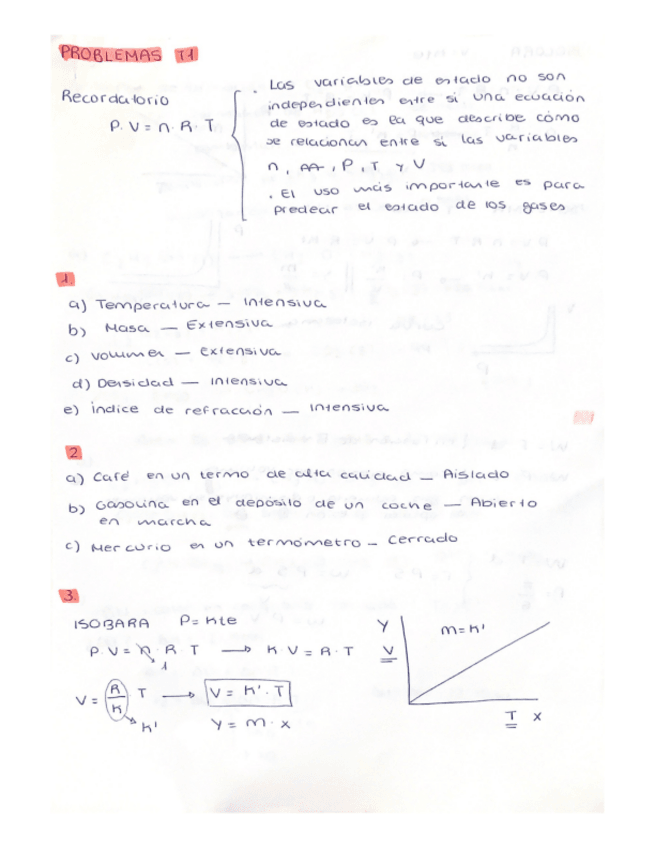 PROBLEMAS T1
Recordatorio
P. V = n. R. T
. Las variables de estado no son
independientes entre si una ecuación
de estado es la que describe cómo
se relacionan entre si las variables
n, , P, T y V
. El uso más importante es para
predecir el estado de los gases
1.
a) Temperatura — Intensiva
b) Masa — Extensiva
c) Volumen — Extensiva
d) Densidad — Intensiva
e) Indice de refracción — Intensiva
2
a) Café en un termo de alta calidad — Aislado
b) Gasolina en el depósito de un coche — Abierto
en marcha
c) Mercurio en un termómetro — Cerrado
3.
ISOBARA P= Kte
P. V = n. R. T → K. V = R. T
1
V = R/K T → V = K'. T
K'
Y = m. x
Y
V
m = K'
T X